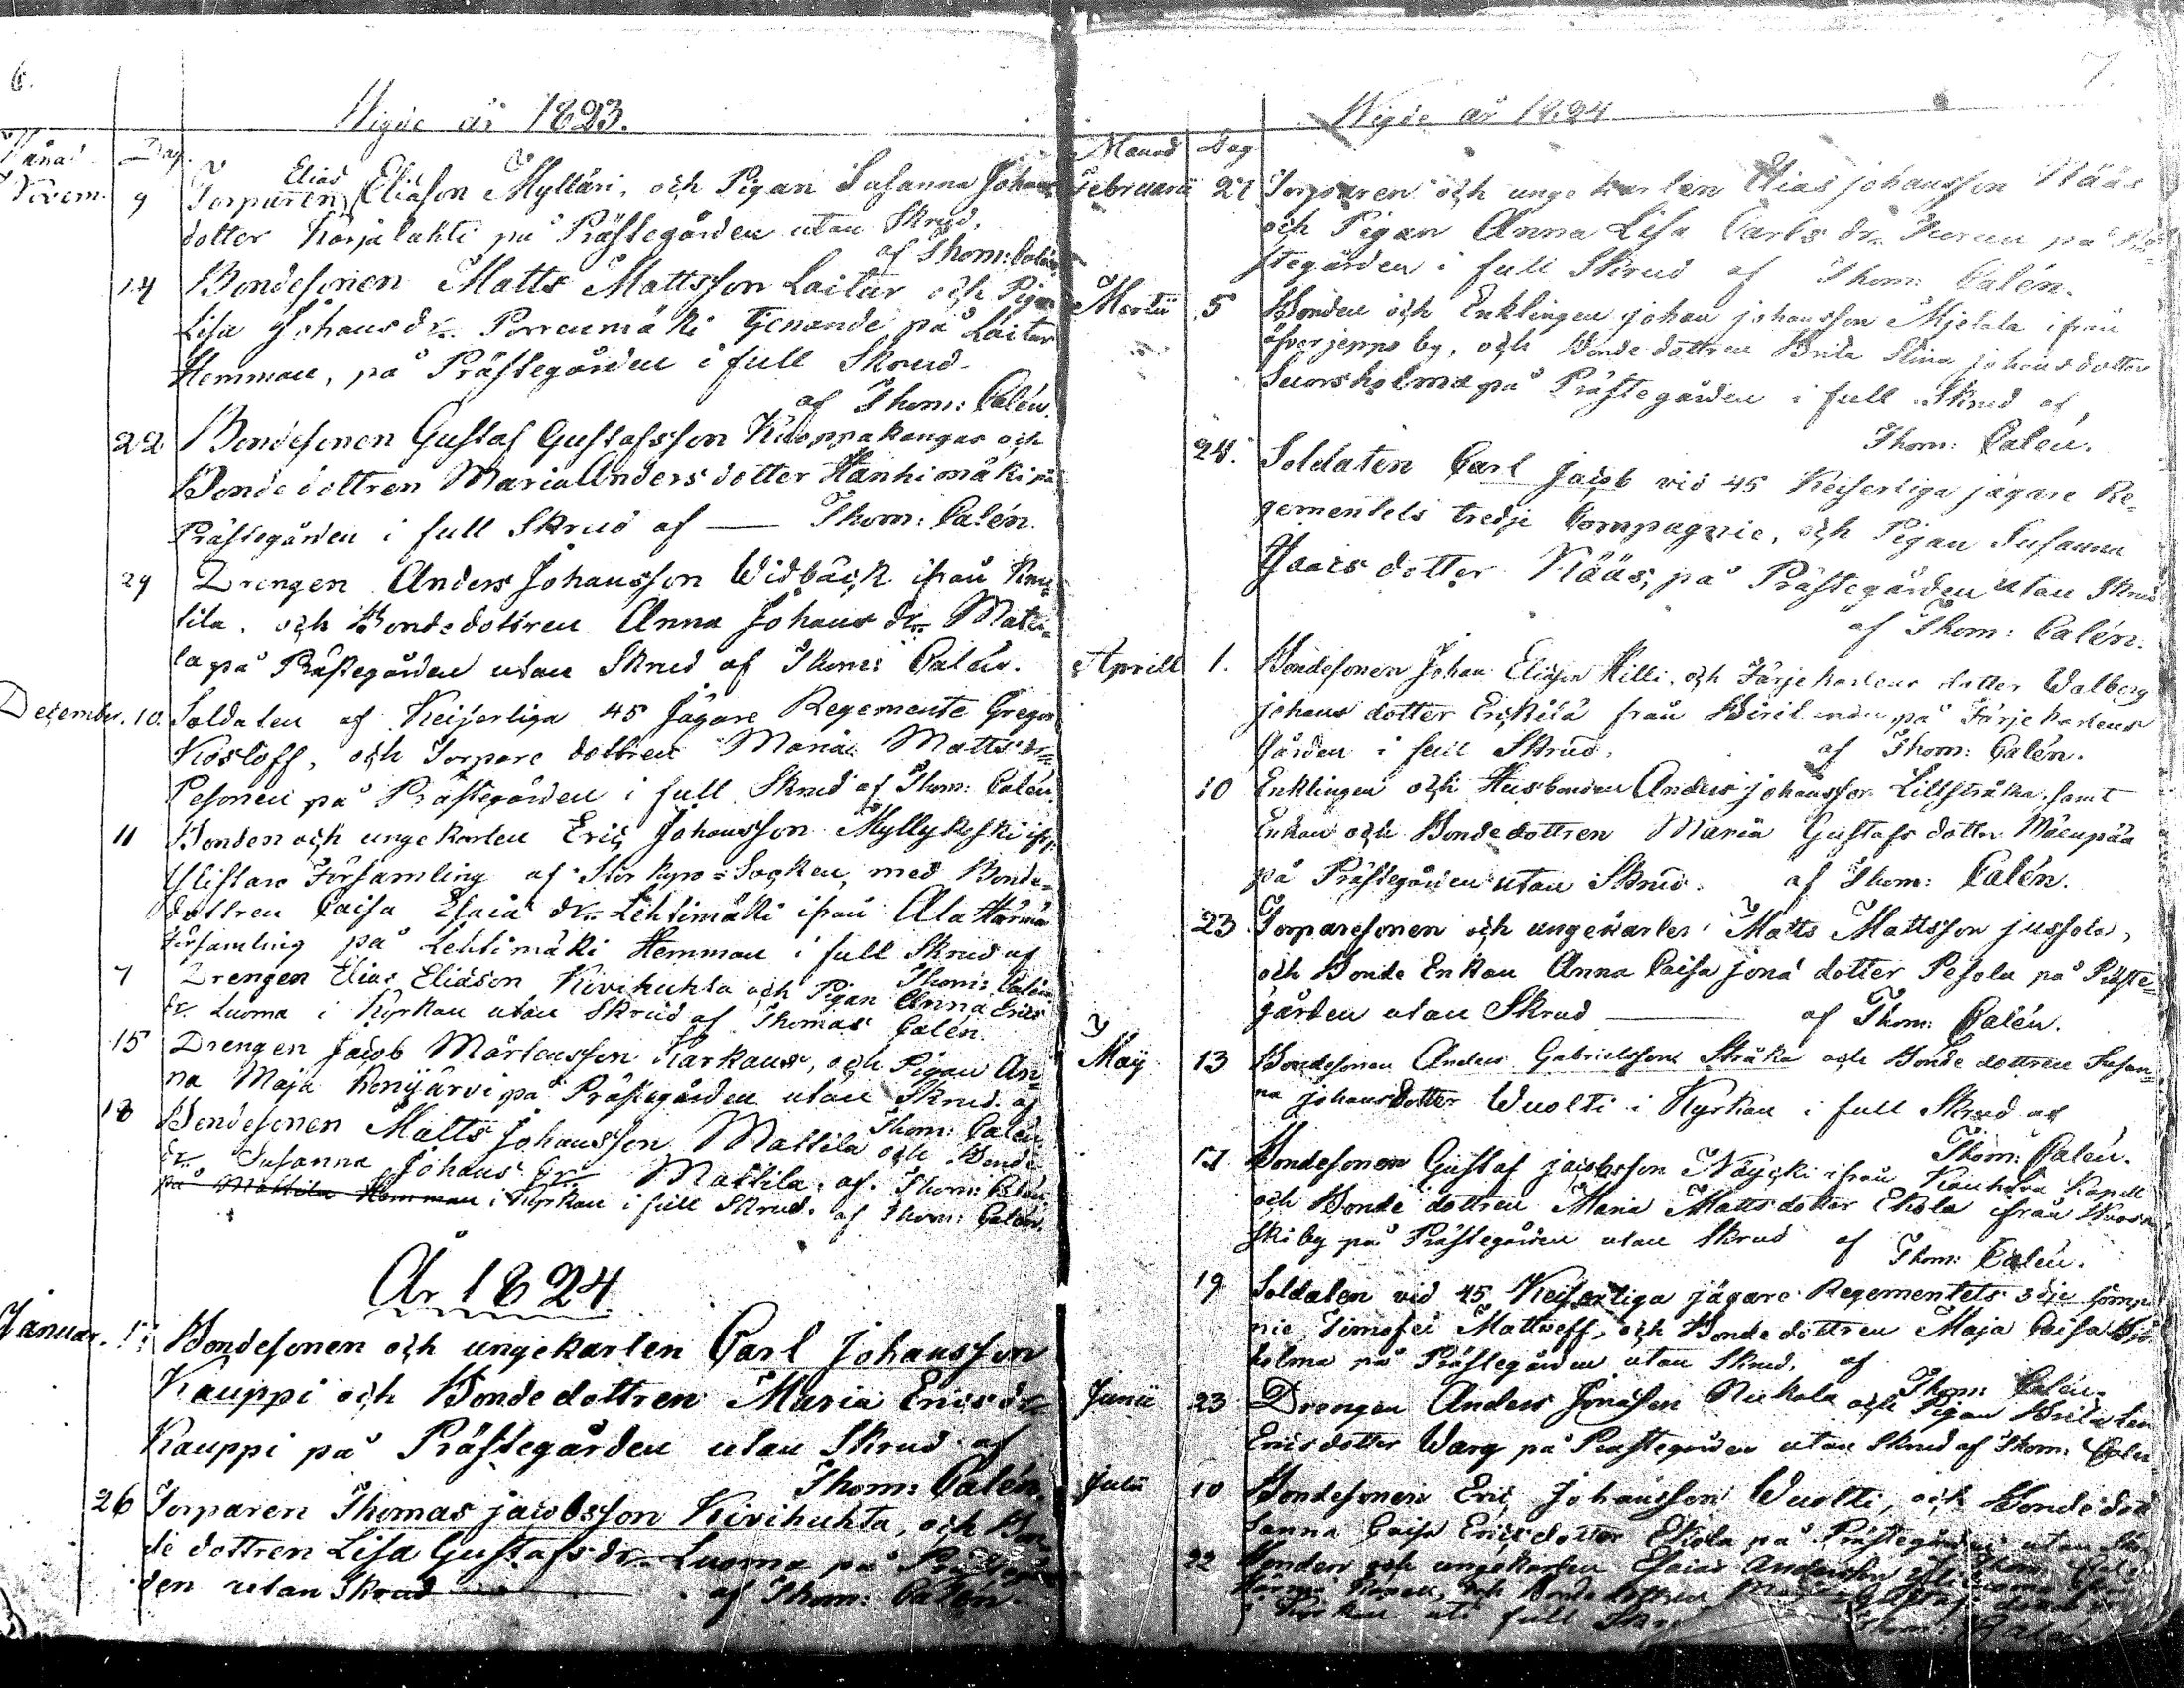 6.
Wigde år 1823.
Månad Dag.
Novem. 9 Torparen Elias Eliasson Myllari, och Pigan Susanna Johans
dotter Karjalahti på Prästegården utan Skrud,
af Thom: Calén.
14 Bondesonen Matts Mattsson Laitur och Pigan
Lisa Johansdr. Porrenmäki tjenande på Laitur
Hemman, på Prästegården i full Skrud
af Thom: Calén.
22 Bondesonen Gustaf Gustafsson Kuoppakangas och
Bondedottren Maria Andersdotter Hanhimäki på
Prästegården i full Skrud af — Thom: Calén.
29 Drengen Anders Johansson Widbäck ifrån
och Bondedottren Anna Johans dr. Matti=
la på Prästegården utan Skrud af Thom: Calén.
December. 10. Soldaten af Keijserliga 45 Jägare Regemente Gregor
Kosloff, och Torpare dottren Maria Matts dr=
Pesonen på Prästegården i full Skrud af Thom: Calén.
11 Bonden och ungekarlen Eric Johansson Myllykoski ifr.
Ylistaro Församling af Storkyro=Socken, med Bonde=
dottren Caisa Esaia dr. Lehtimäki ifrån Ala Härmä
Församling på Lehtimäki Hemman i full Skrud af
Thom: Calén
7 Drengen Elias Eliasson Kivihuhta och Pigan Anna Erics
dr. Luoma i Kyrkan utan Skrud af Thomas Calén.
15 Drengen Jacob Mårtensson Karkaus, och Pigan An=
na Maja Kenijärvi på Prästegården utan Skrud af
Thom: Calén.
18 Bondesonen Matts Johansson Mattila och Bonde
dr. Susanna Johans dr. Mattila. af. Thom: Calén
på Mattila Hemman i Kyrkan i full Skrud. af Thom: Calén.
År 1824
Januar. Bondesonen och ungekarlen Carl Johansson
Kauppi och Bondedottren Maria Ericsdr.
Kauppi på Prästegården utan Skrud af
Thom: Calén.
26 Torparen Thomas Jacobsson Kivihuhta, och Bon
de dottren Lisa Gustafsdr. Luoma på Prästegår
den utan Skrud — af Thom: Calén.
7.
Wigde år 1824
Manad Dag
Februarii Torparen och ungekarlen Elias Johansson Nääs
och Pigan Anna Lisa Carls dr. på Prä=
stegården i full Skrud af Thom: Calén.
Martii 5 Bonden och Enklingen Johan Johansson Mjelala ifrån
öfverjeppo by, och Bondedottren Brita Stina Johansdotter
på Prästegården i full Skrud af,
Thom: Calén.
24. Soldaten Carl Jacob vid 45 Keiserliga jägare Re=
gementets tredje Compagnie, och Pigan Susanna
Isacs dotter Nääs, på Prästegården utan Skrud
af Thom: Calén.
Aprill 1. Bondesonen Johan Eliæson Killi, och Färjekarlens dotter Walberg
Johans dotter Erkilä från på Färjekarlens
Gården i full Skrud. af Thom: Calén.
10 Enklingen och Husbonden Anders Johansson Lillstråka samt
Enkan och Bondedottren Maria Gustafs dotter
på Prästegården utan Skrud. af Thom: Calén.
23 Torparesonen och ungekarlen Matts Mattsson Jussola,
och Bonde Enkan Anna Caisa Jona dotter Pesola på Präste=
gården utan Skrud — af Thom: Calén.
Maij 13 Bondesonen Anders Gabrielsson Stråka och Bonde dottren Susan=
na Johansdotter Wuolti i Kyrkan i full Skrud af
Thom: Calén.
Bondesonen Gustaf Jacobsson Näycki ifrån Kauhava Kapell
och Bonde dottren Maria Mattsdotter Ekola ifrån
ski by på Prästegården utan Skrud af
Thom: Calén.
19 Soldaten vid 45 Keijserliga jägare Regementets 3dje Comp
nie, Timofei Mattveff, och Bondedottren Maja Caisa
holma på Prästegården utan Skrud. af
Thom: Calén.
Junii 23 Drengen Anders Jonasson och Pigan Brita
Ericsdotter Warg på Prästegården utan Skrud af Thom: Calén
Julii 10 Bondesonen Eric Johansson Wuolti, och Bondedot
Sanna Caisa Ericsdotter Ekola på Prästegården utan
22 Bonden och ungekarlen Esaias Andersson
och Bondedottren
i Kyrkan uti full